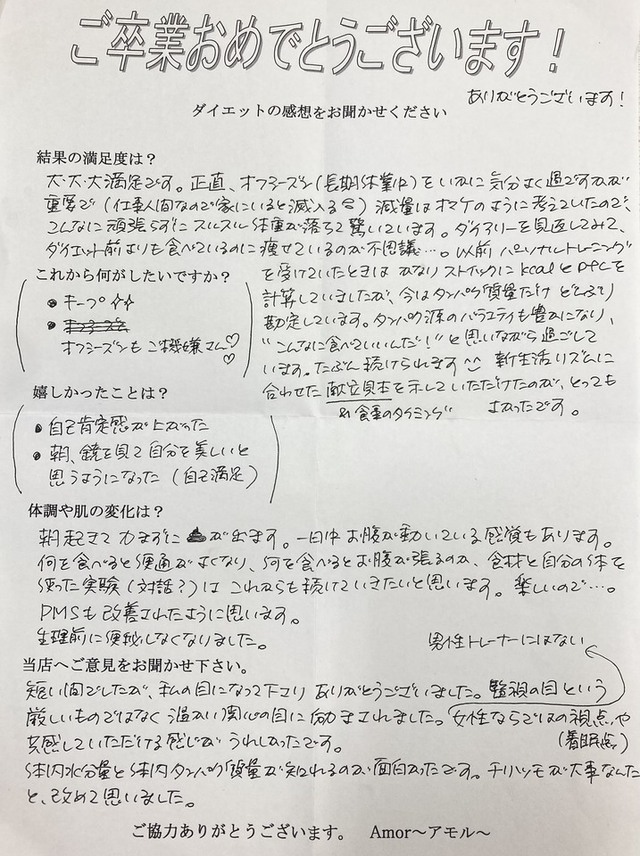 ご卒業おめでとうございます！
ありがとうございます！
ダイエットの感想をお聞かせください
結果の満足度は？
大・大・大満足です。正直、オフシーズン(長期休業中)をいかに気分よく過ごすかが
重要で(仕事人間なので家にいると滅入る)減量はオマケのように考えていたので、
こんなに頑張らずにスルスル体重が落ちて驚いています。ダイアリーを見返してみて、
ダイエット前よりも食べているのに痩せているのが不思議…。以前パーソナルトレーニング
を受けていたときは かなりストイックにkcalとPFCを
計算していましたが、今はタンパク質量だけ どんぶり
勘定しています。タンパク源のバラエティも豊かになり、
"こんなに食べていいんだ！"と思いながら過ごして
います。たぶん続けられます 新生活リズムに
合わせた献立見本を示していただけたのが、とっても
や食事のタイミング
よかったです。
これから何がしたいですか？
●キープ☆☆
●
オフシーズンもご機嫌さん♡♡
嬉しかったことは？
●自己肯定感が上がった
●朝、鏡を見て自分を美しいと
思うようになった(自己満足)
体調や肌の変化は？
朝起きて力まずに💩が出ます。一日中お腹が動いている感覚もあります。
何を食べると便通がよくなり、何を食べるとお腹が張るのか、食材と自分の体を
使った実験(対話？)は これからも続けていきたいと思います。楽しいので…。
PMSも改善されたように思います。
生理前に便秘しなくなりました。
男性トレーナーにはない
当店へご意見をお聞かせ下さい。
短い間でしたが、私の目になって下さり ありがとうございました。監視の目という
厳しいものではなく 温かい関心の目に励まされました。女性ならではの視点や
(着眼点)
共感していただける感じが うれしかったです。
体内水分量と体内タンパク質量が知れるのが面白かったです。チリツモが大事なんだ
と、改めて思いました。
ご協力ありがとうございます。 Amor～アモル～